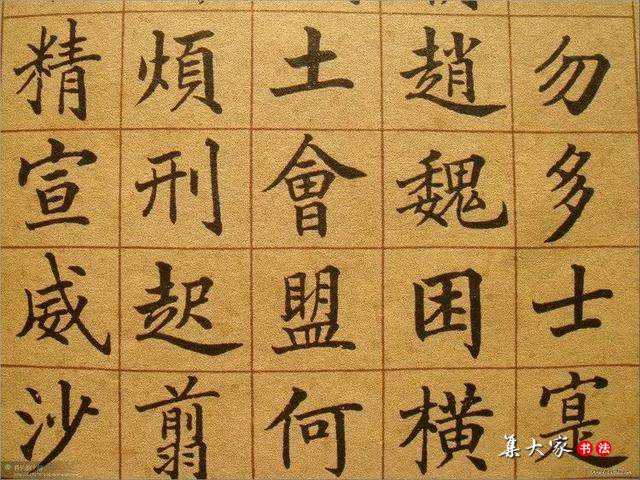 勿多士寔
趙魏困橫
土會盟何
煩刑起翦
精宣威沙
集大家书法